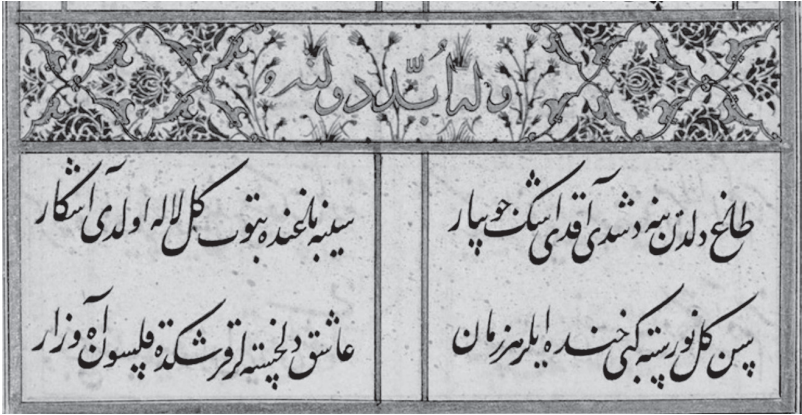 وله اُبّد دولته
دلدن ینه دشدی آقدی اشک جویبار سینه باغنده بتوب کل لاله اولدی آشکار
سن کل نورسته کبی خنده ایلر هر زمان عاشق دلخسته لر قرشکده قلسون آه و زار